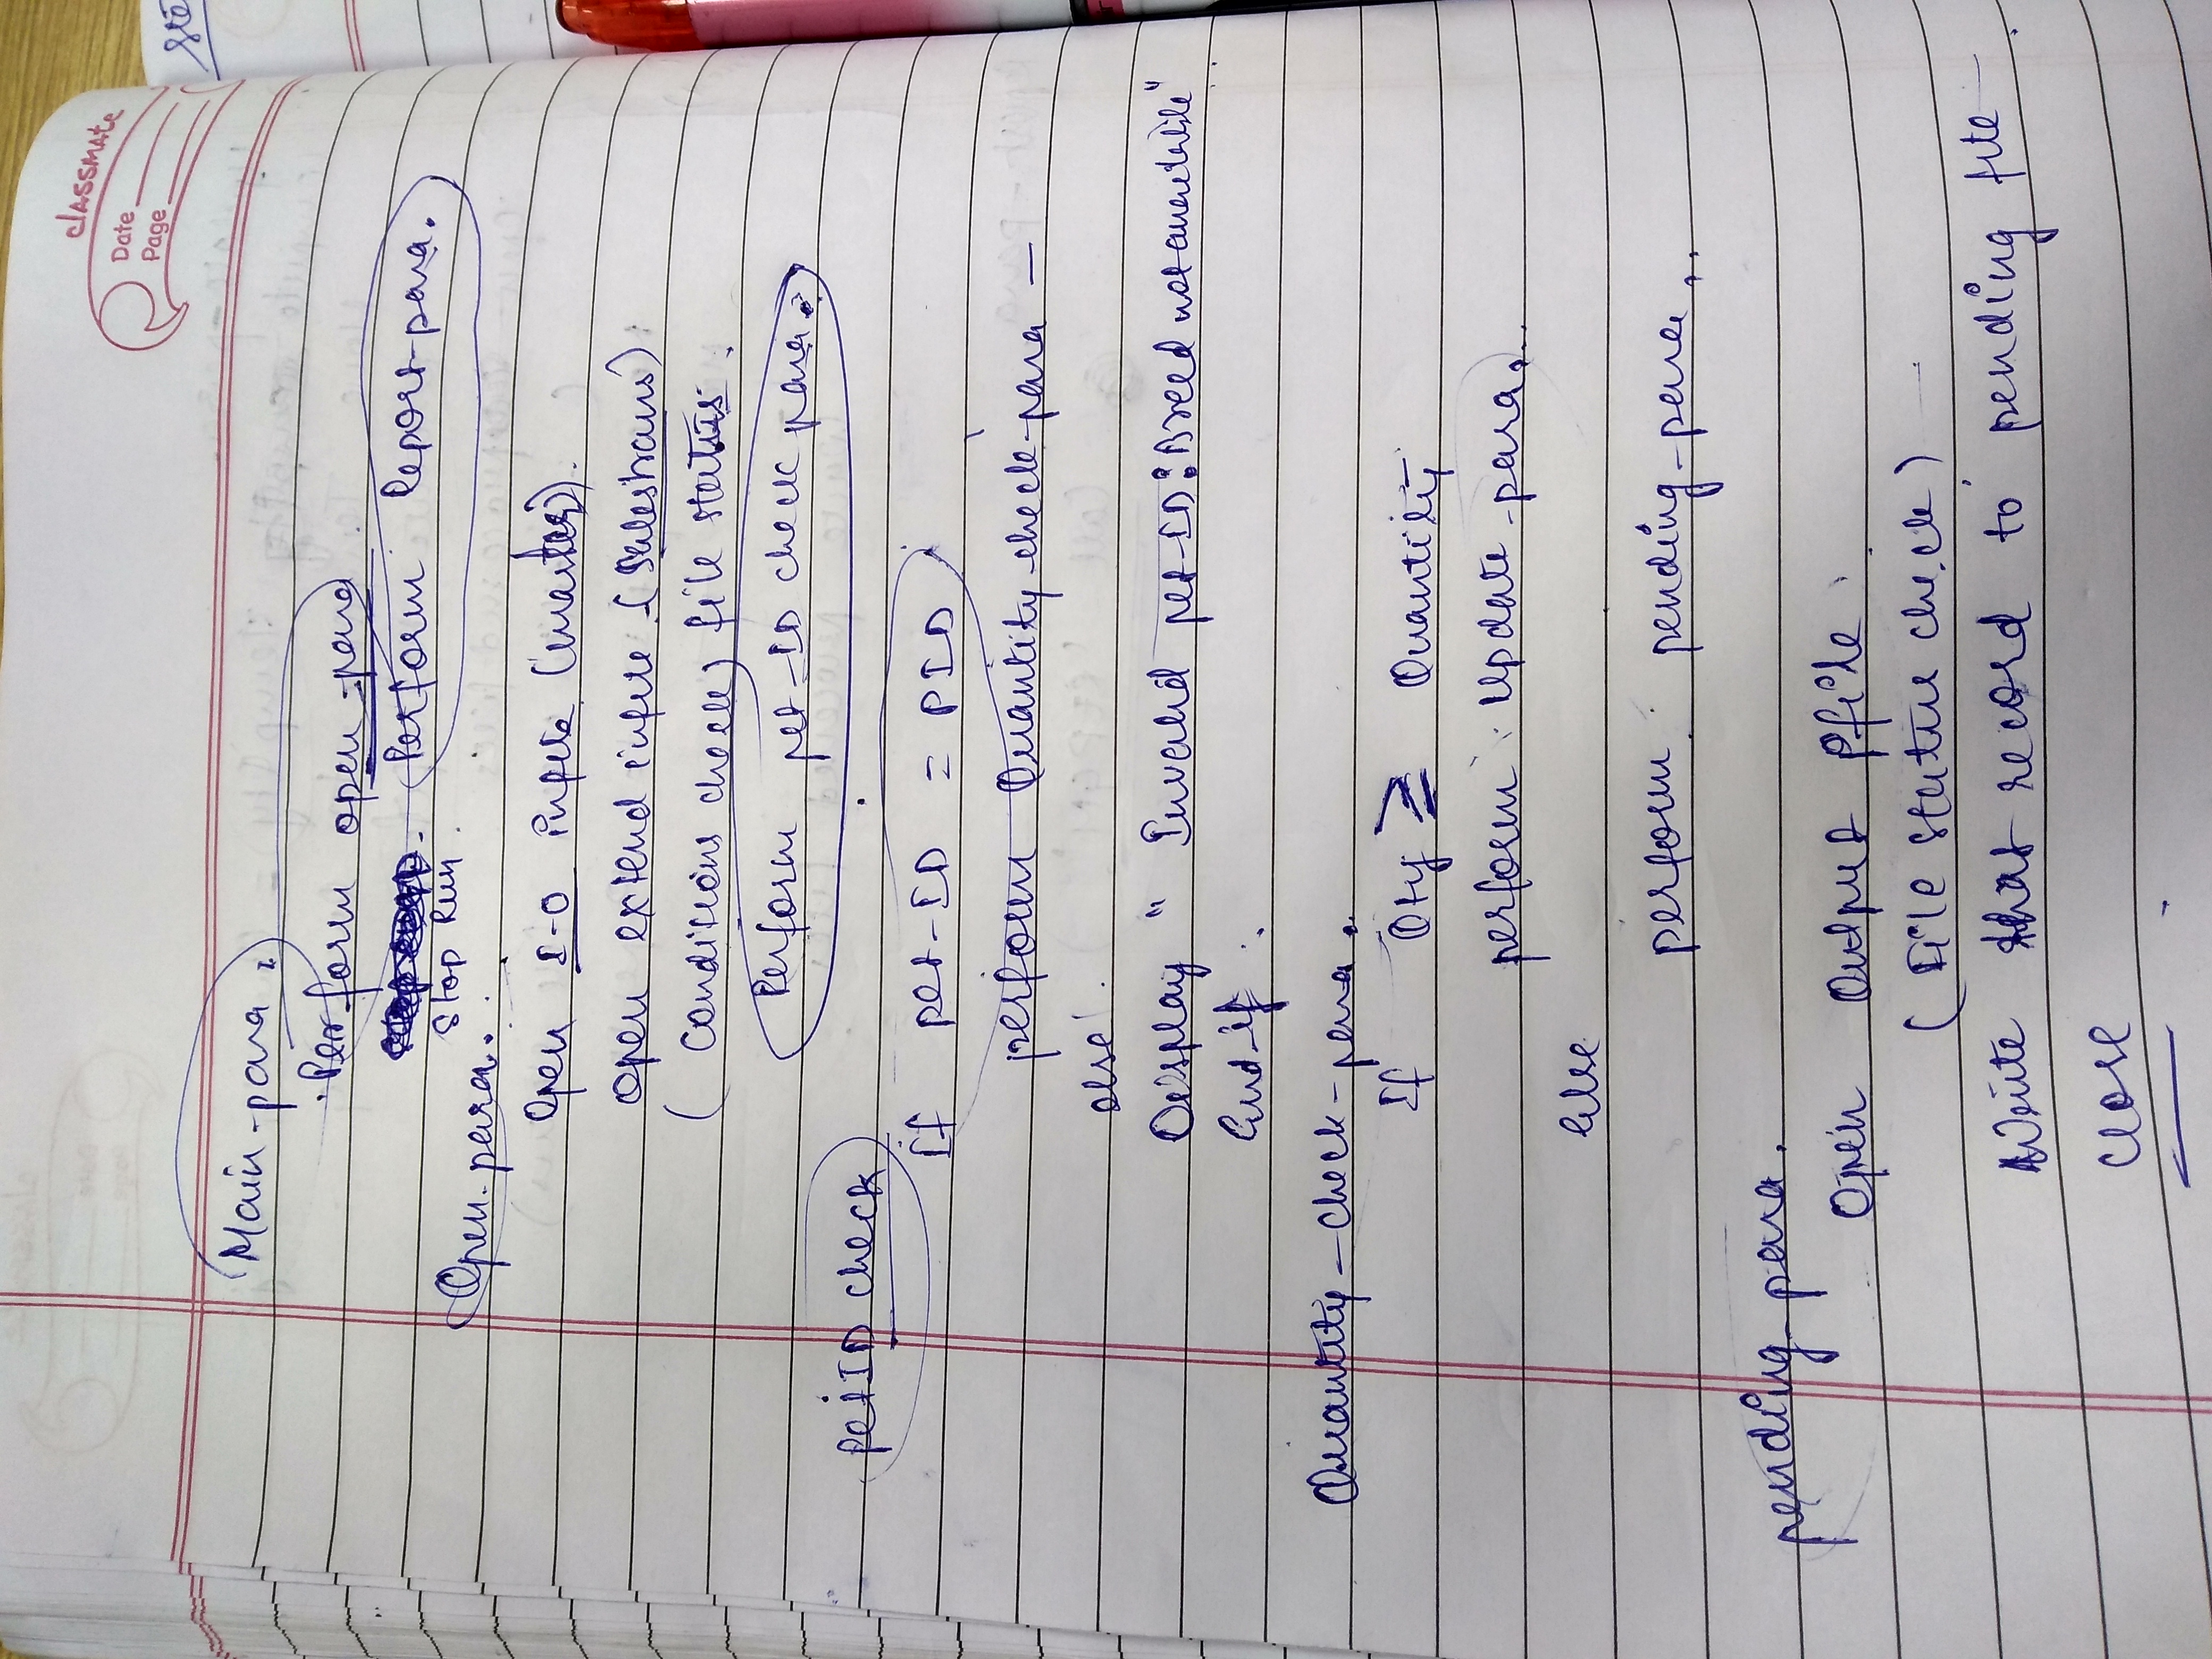 classmate
Date
Page
Main-para.
Perform open-para
Perform Report-para.
Stop Run.
Open-para.
Open I-O infile (master).
open extend infile (Salestrans)
(Conditions check) file status.
Perform pet-ID check para.
petID check
If pet-ID = PID
perform Quantity-check-para
else
Display " Invalid pet-ID: Breed not available"
End-if.
Quantity-check-para.
If Qty ≥ Quantity
perform Update-para.
Else
perform pending-para.
pending-para.
Open Output Pfile
(File status check)
Write that record to pending file
Close